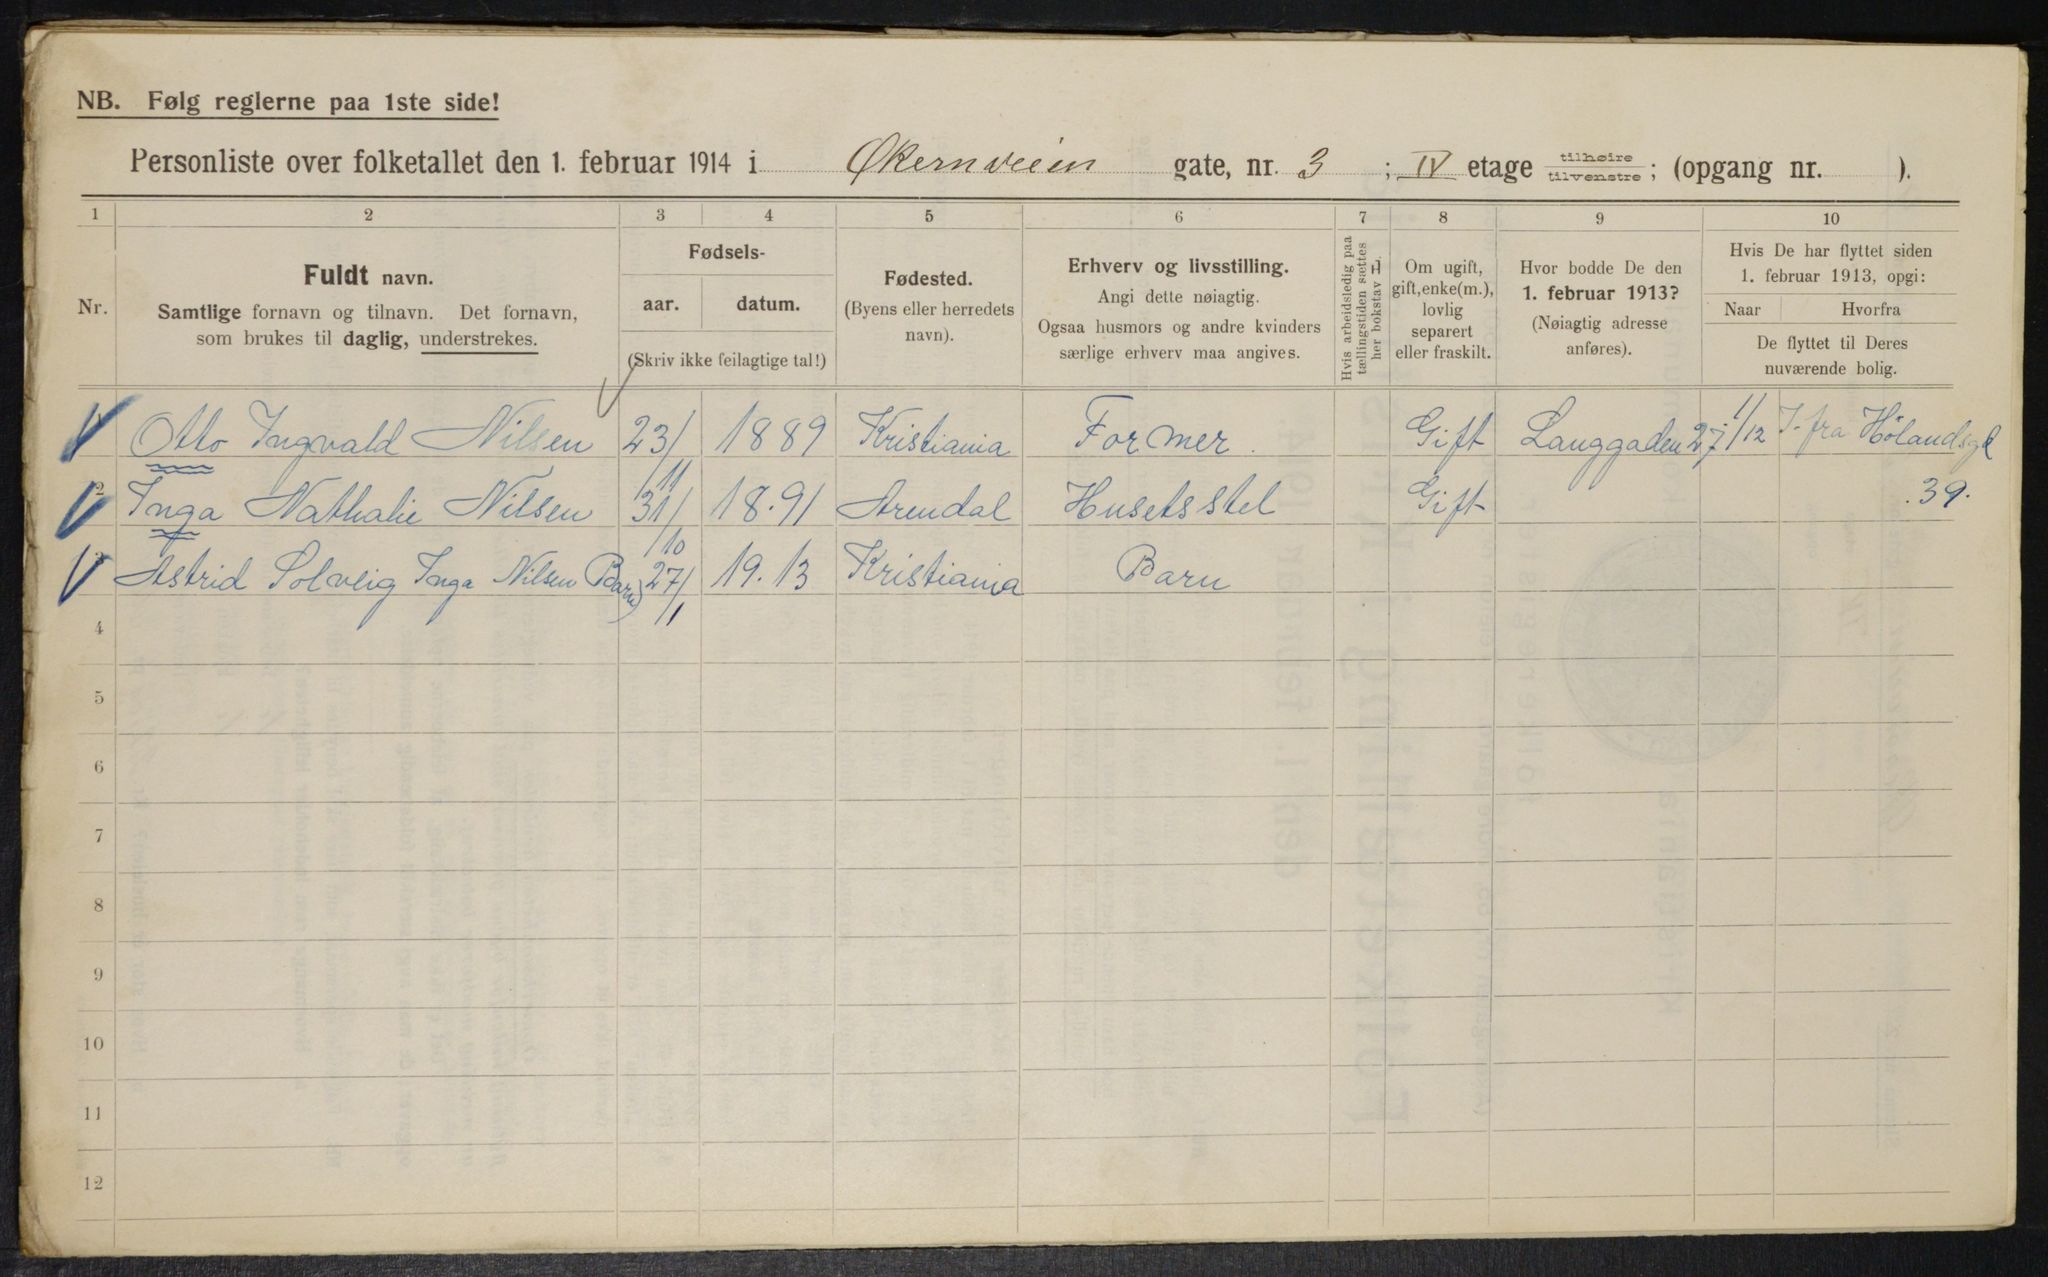 NB. Følg reglerne paa 1ste side!
Personliste over folketallet den 1. februar 1914 i Økernveien gate, nr. 3 ; IV etage tilhøire tilvenstre ; (opgang nr. ).
1 2 3 4 5 6 7 8 9 10
Nr.
Fuldt navn.
Samtlige fornavn og tilnavn. Det fornavn,
som brukes til daglig, understrekes.
Fødsels-
aar. datum.
(Skriv ikke feilagtige tal!)
Fødested.
(Byens eller herredets
navn).
Erhverv og livsstilling.
Angi dette nøiagtig.
Ogsaa husmors og andre kvinders
særlige erhverv maa angives.
Hvis arbeidsledig paa
tællingstiden sættes
her bokstav L.
Om ugift,
gift, enke(m.),
lovlig
separert
eller fraskilt.
Hvor bodde De den
1. februar 1913?
(Nøiagtig adresse
anføres).
Hvis De har flyttet siden
1. februar 1913, opgi:
Naar Hvorfra
De flyttet til Deres
nuværende bolig.
Otto Ingvald Nilsen 23/11 1889 Kristiania Former. Gift Langgaden 27 1/12 fra Hølandsgd
2 Inga Nathalie Nilsen 31/10 18.91 Arendal Husets stel Gift .39.
3 Astrid Solveig Inga Nilsen Barn) 27/1 19.13 Kristiania Barn
4
5
6
7
8
9
10
11
12